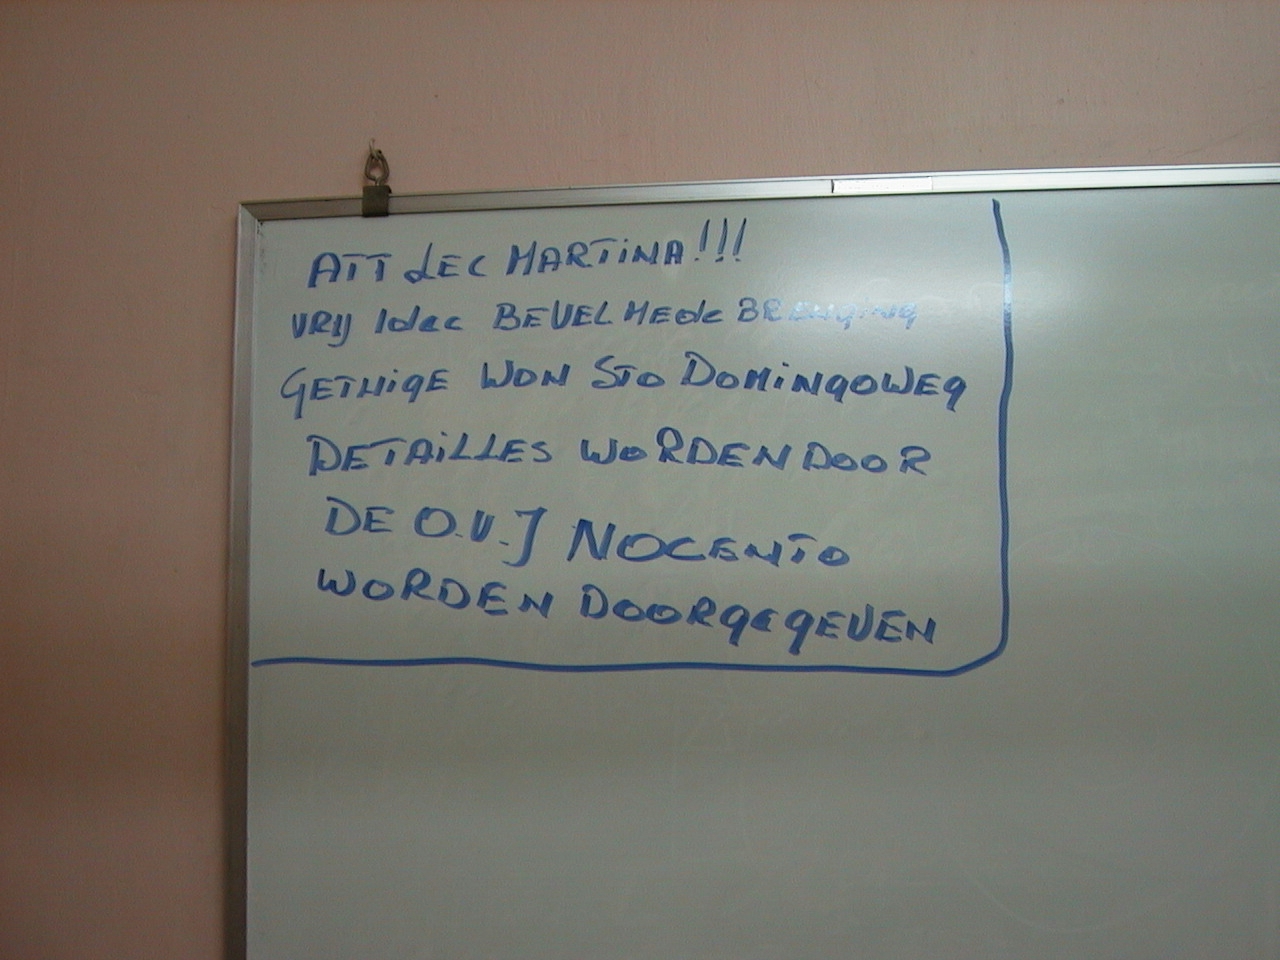 ATT LEC MARTINA!!!
VRIJ 1dec BEVEL MEDE BRENGING
GETUIGE WON STO DOMINGOWEG
DETAILLES WORDEN DOOR
DE O.V.J NOCENTO
WORDEN DOORGEGEVEN